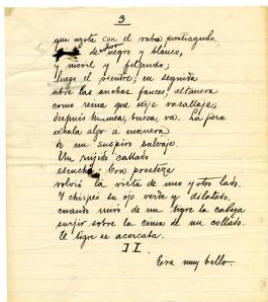 3
que azota con el rabo puntiagudo
de color negro y blanco,
y móvil y felpudo;
luego el vientre; en seguida
abre las anchas fauces, altanera
como reina que exije vasallaje;
después husmea, busca, va. La fiera
exhala algo a manera
de un suspiro salvaje.
Un rujido callado
escuchó. Con presteza
volvió la vista de uno y otro lado.
Y chispeó su ojo verde y dilatado,
cuando miró de un tigre la cabeza
surgir sobre la cima de un collado.
El tigre se acercaba.
II.
Era muy bello.